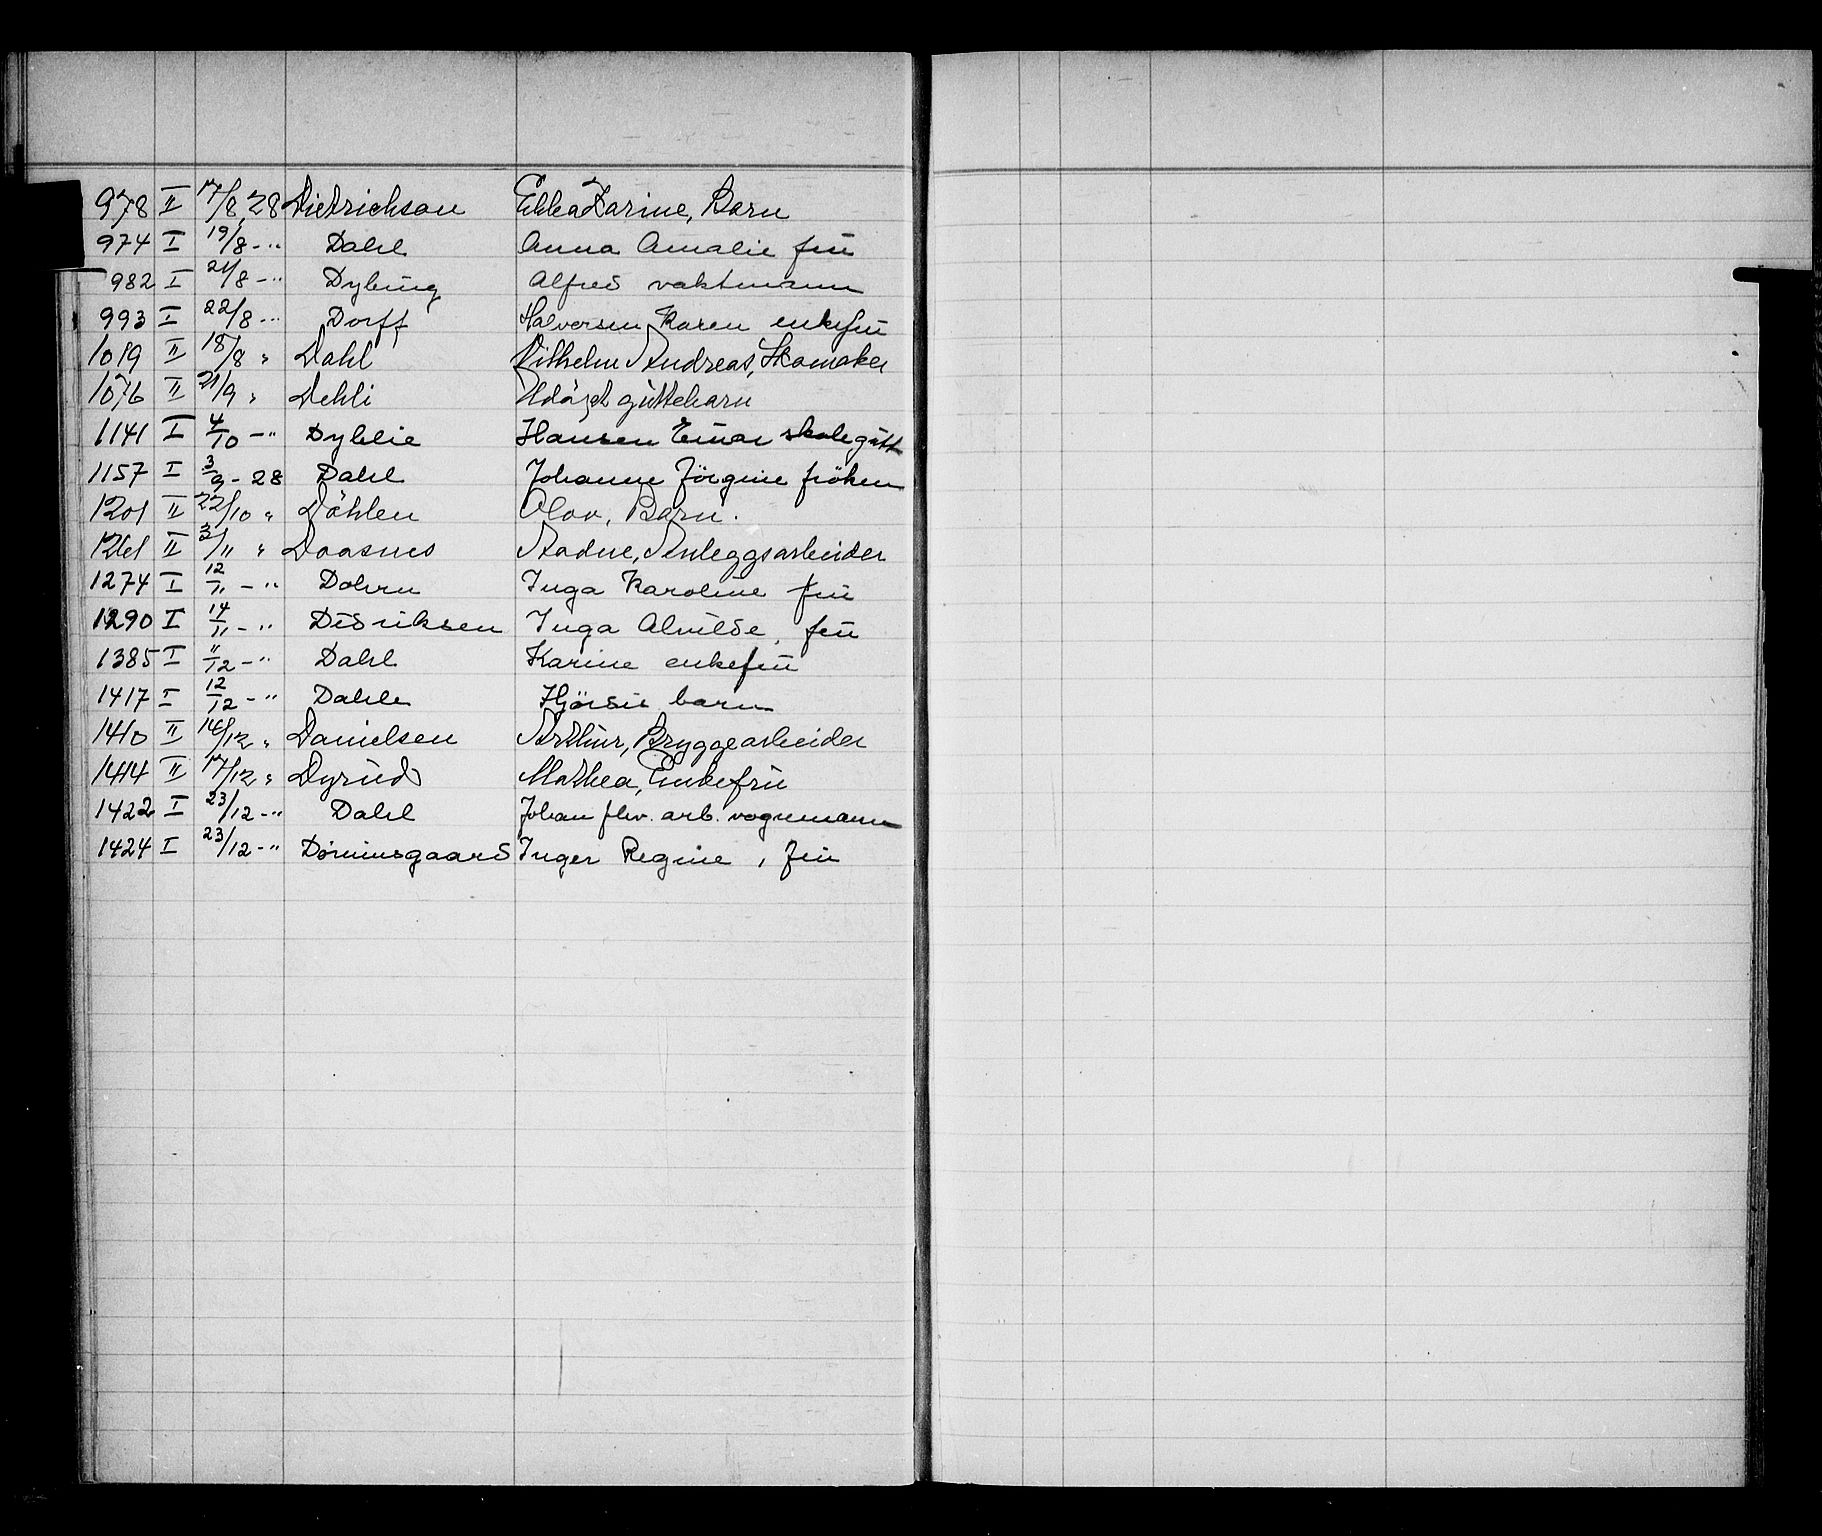 978 II 17/8 28 Dietrichson Ebba Karine, Barn
974 I 19/8 - " Dahl Anna Amalie frü
982 I 21/8 - " Dybing Alfred vaktmann
993 I 22/8 - " Dorff Halvorsen Karen enkefrü
1019 II 18/8 " Dahl Vilhelm Andreas, Skomaker
1076 II 21/9 " Dehli Udöpt güttebarn
1141 I 4/10 - " Dyblie Hansen Einar skolegütt
1157 I 3/9 - 28 Dahl Johanne Jörgine fröken
1201 II 22/10 " Döhlen Olav, Barn.
1261 II 3/11 " Daasnes Aadne, Anleggsarbeider
1274 I 12/11 - " Dohrn Inga Karoline frü
1290 I 14/11 - " Didriksen Inga Alvilde, frü
1385 I 11/12 - " Dahl Karine enkefrü
1417 I 12/12 - " Dahle Hjördis barn
1410 II 16/12 " Danielsen Arthür, Bryggearbeider
1414 II 17/12 " Dyrüd Mathea, Enkefrü
1422 I 23/12 - " Dahl Johan fhv. arb. vognmann
1424 I 23/12 - " Inger Regine, frü